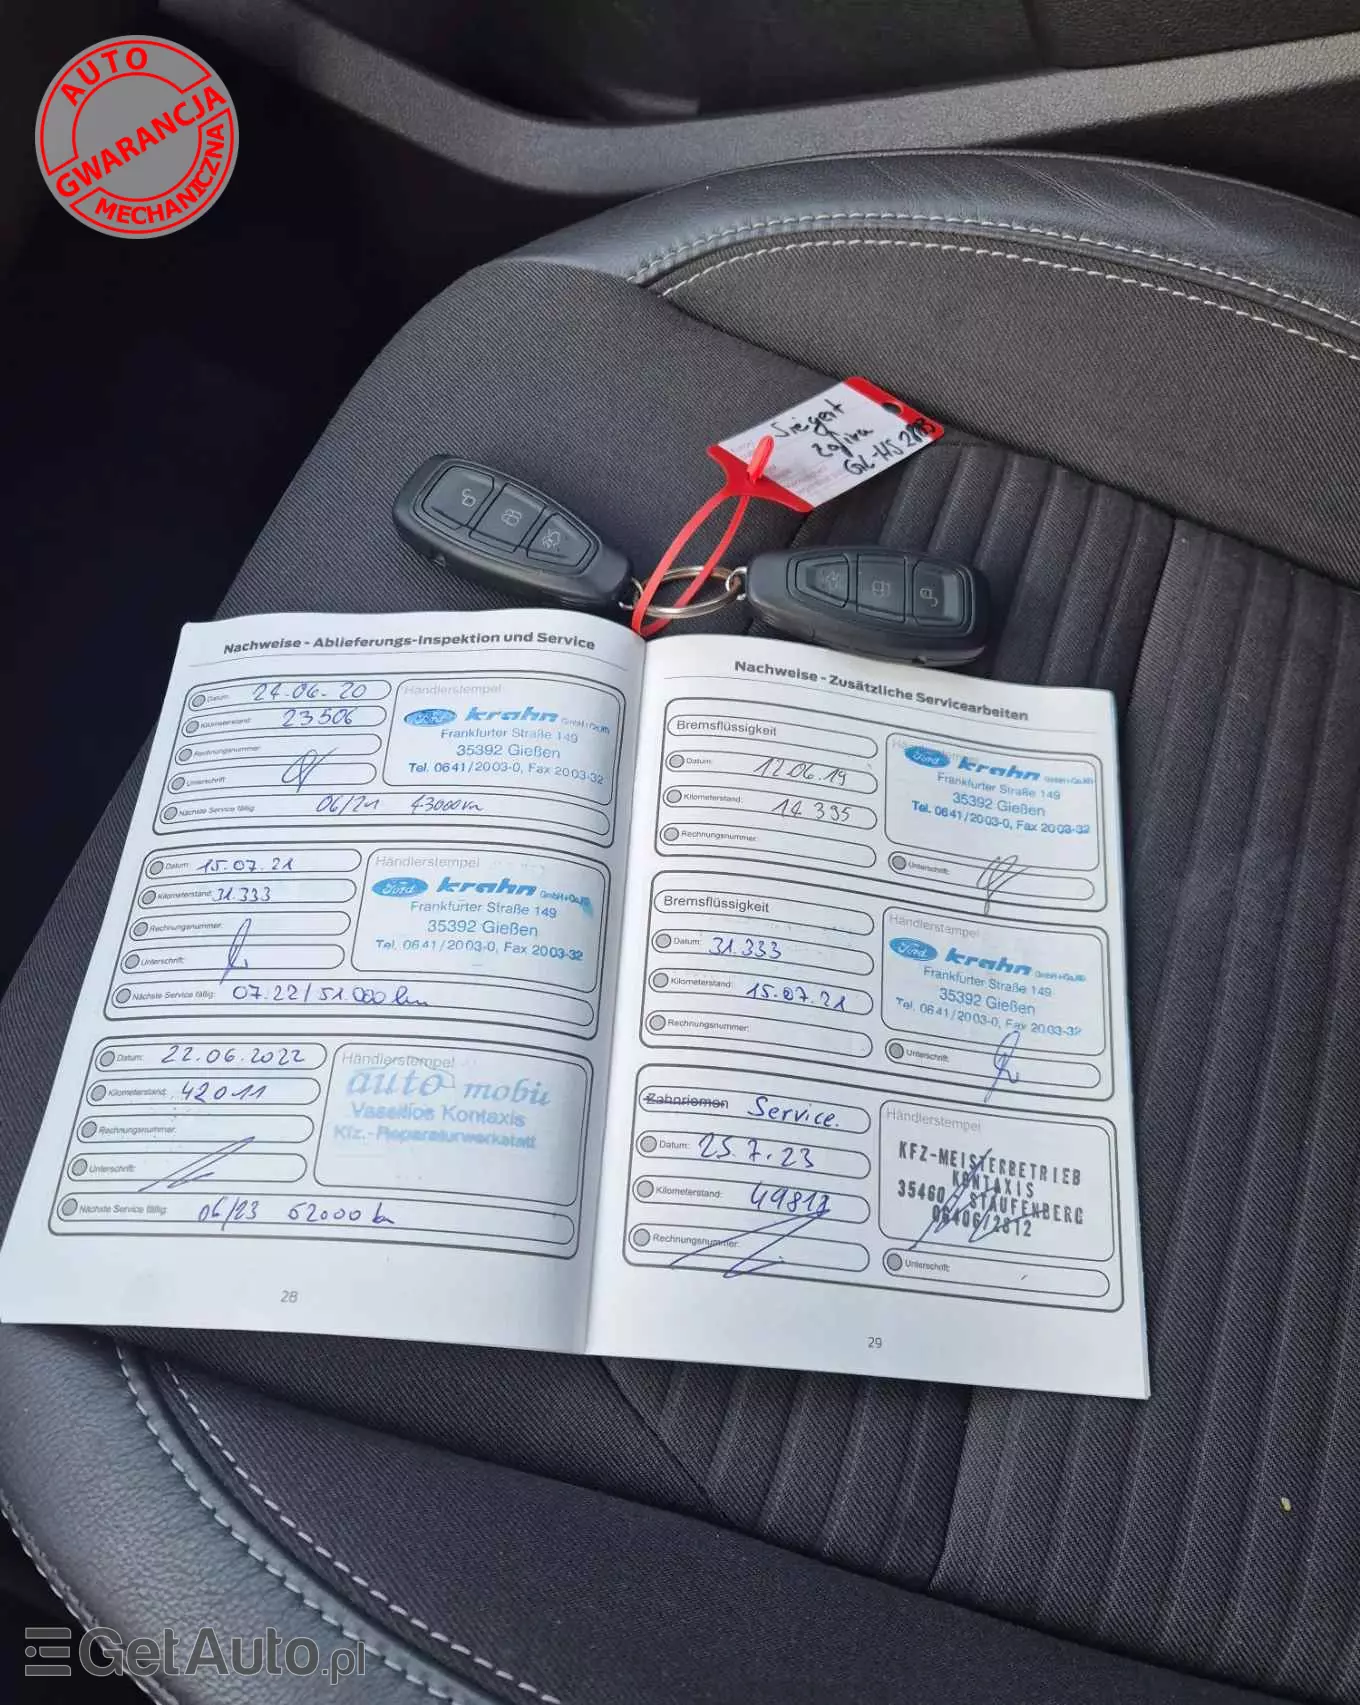 AUTO
GWARANCJA
MECHANICZNA
Siegert
Zafira
GI-HS 2893
Nachweise - Ablieferungs-Inspektion und Service
Datum: 24.06.20
Kilometerstand: 23506
Rechnungsnummer:
Unterschrift:
Nächste Service fällig: 06/21 43000 km
Händlerstempel
Ford krahn GmbH+Co.KG
Frankfurter Straße 149
35392 Gießen
Tel. 0641/2003-0, Fax 2003-32
Datum: 15.07.21
Kilometerstand: 31.333
Rechnungsnummer:
Unterschrift:
Nächste Service fällig: 07.22/51.000 km
Händlerstempel
Ford krahn GmbH+Co.KG
Frankfurter Straße 149
35392 Gießen
Tel. 0641/2003-0, Fax 2003-32
Datum: 22.06.2022
Kilometerstand: 42011
Rechnungsnummer:
Unterschrift:
Nächste Service fällig: 06/23 62000 km
Händlerstempel
auto mobil
Vassilios Kontaxis
Kfz.-Reparaturwerkstatt
28
Nachweise - Zusätzliche Servicearbeiten
Bremsflüssigkeit
Datum: 12.06.19
Kilometerstand: 14.395
Rechnungsnummer:
Händlerstempel
Ford krahn GmbH+Co.KG
Frankfurter Straße 149
35392 Gießen
Tel. 0641/2003-0, Fax 2003-32
Unterschrift:
Bremsflüssigkeit
Datum: 31.333
Kilometerstand: 15.07.21
Rechnungsnummer:
Händlerstempel
Ford krahn GmbH+Co.KG
Frankfurter Straße 149
35392 Gießen
Tel. 0641/2003-0, Fax 2003-32
Unterschrift:
Zahnriemen Service.
Datum: 25.7.23
Kilometerstand: 49817
Rechnungsnummer:
Händlerstempel
KFZ-MEISTERBETRIEB
KONTAXIS
35460 STAUFENBERG
06406/2812
Unterschrift:
29
GetAuto.pl